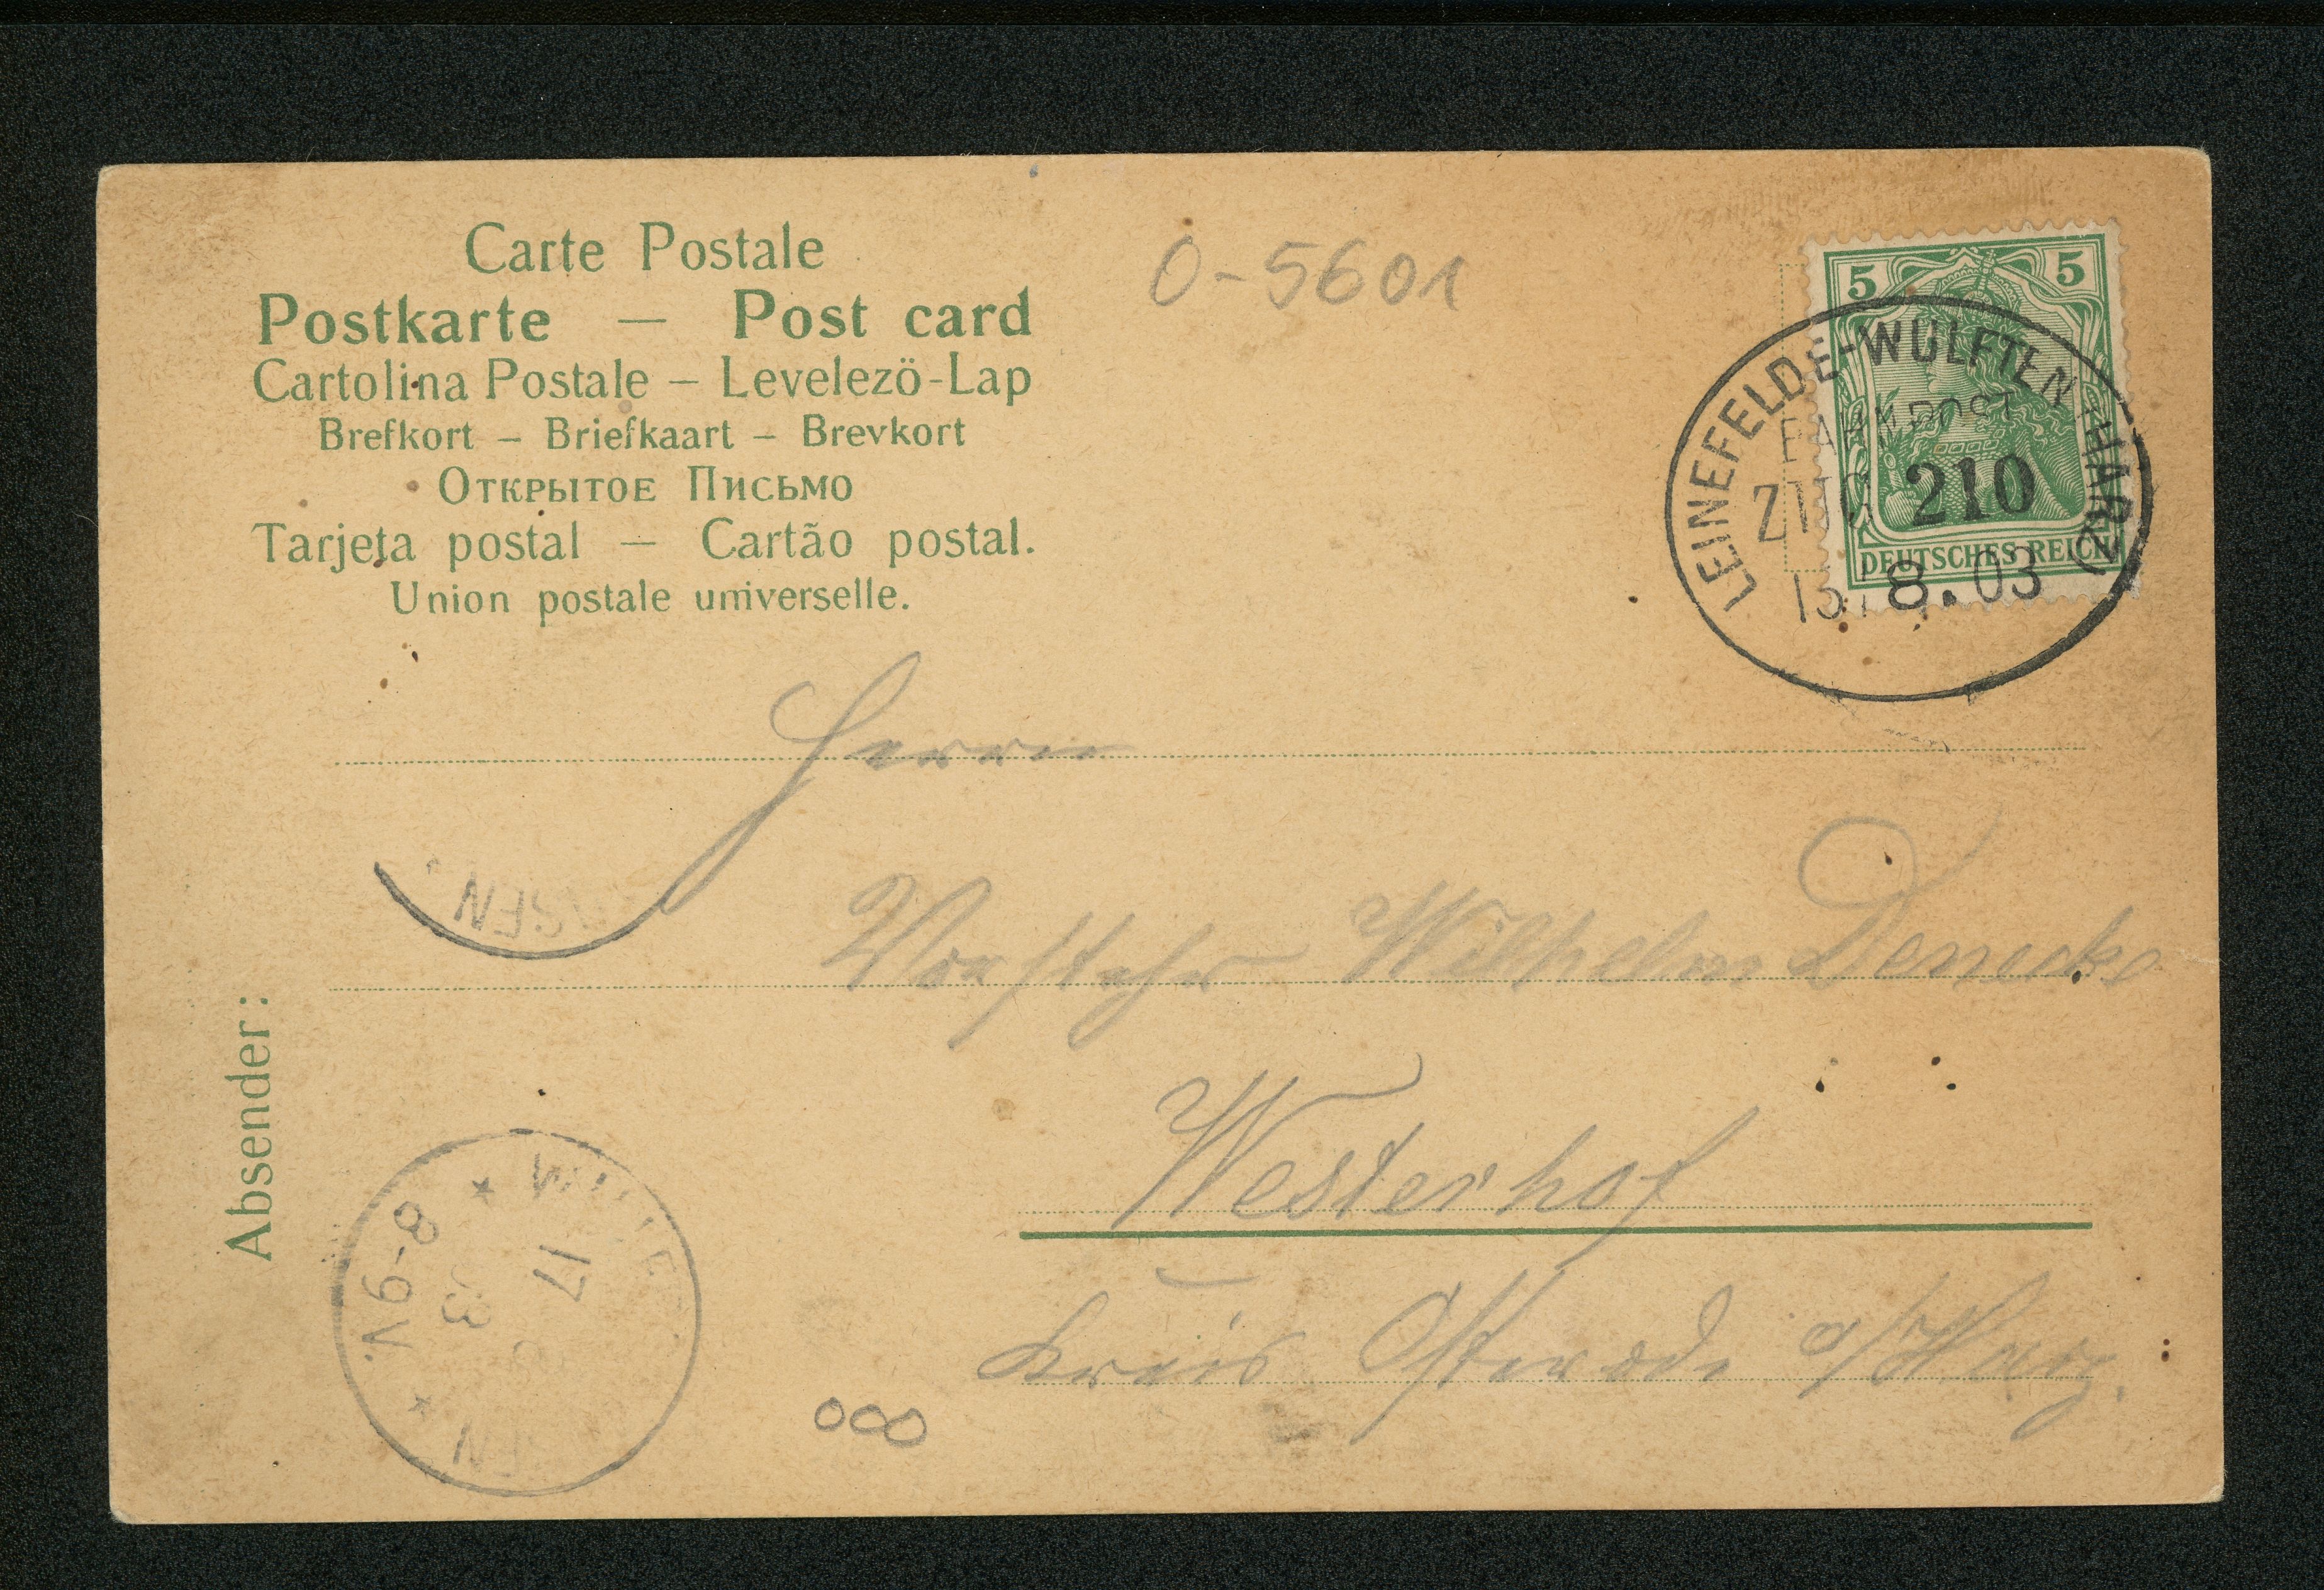 Carte Postale
Postkarte — Post card
Cartolina Postale – Levelezö-Lap
Brefkort – Briefkaart – Brevkort
Открытое Письмо
Tarjeta postal — Cartão postal.
Union postale universelle.
0-5601
5 5
DEUTSCHES REICH
LEINEFELDE-WULFTEN (HARZ)
BAHNPOST
ZUG 210
8.03
Herrn
Vorsteher Wilhelm Denecke
Westerhof
Kreis Osterode a/Harz.
Absender:
17
8-9V.
000